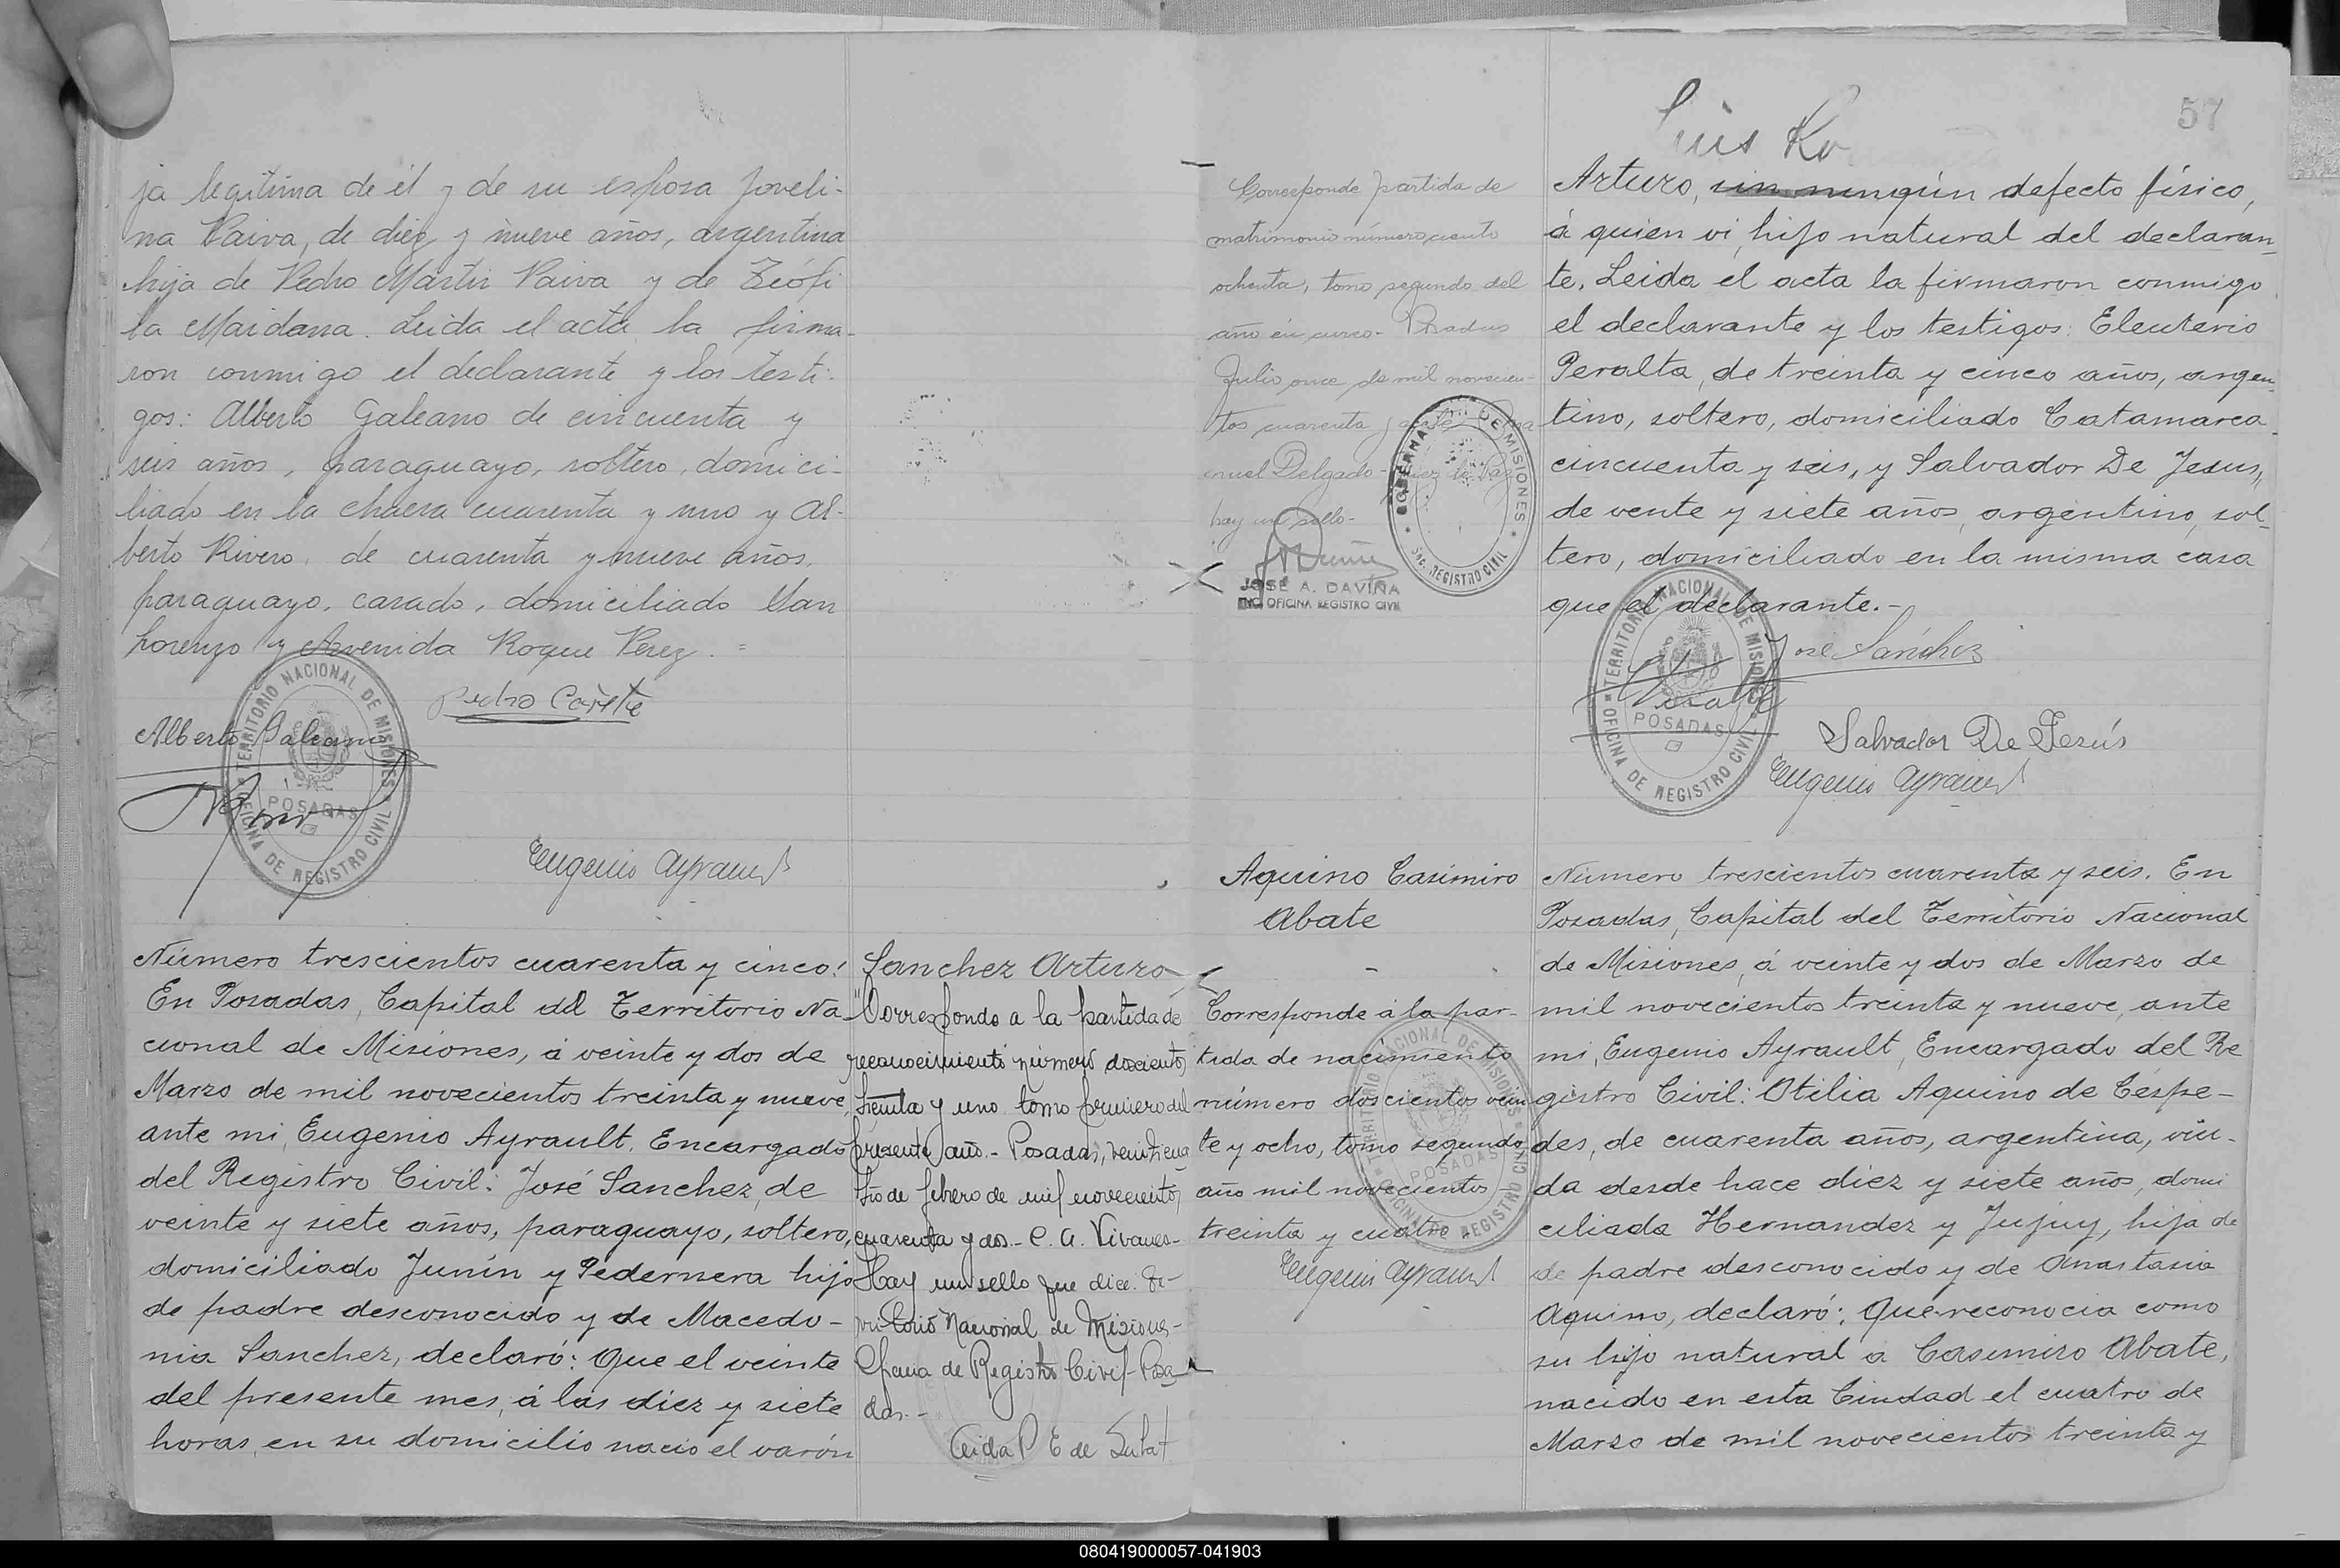 ja legítima de él y de su esposa Joveli-
na Paiva, de diez y nueve años, argentina
hija de Pedro Martir Paiva y de Teófi
la Maidana. Leida el acta la firma-
ron conmigo el declarante y los testi-
gos: Alberto Galeano de cincuenta y
seis años, paraguayo, soltero, domici-
liado en la chacra cuarenta y uno y Al-
berto Rivero, de cuarenta y nueve años,
paraguayo, casado, domiciliado San
Lorenzo y Avenida Roque Perez. =
Pedro Cañete
Alberto Galeano
TERRITORIO NACIONAL DE MISIONES
POSADAS
OFICINA DE REGISTRO CIVIL
Eugenio Ayrault
Número trescientos cuarenta y cinco:
En Posadas, Capital del Territorio Na-
cional de Misiones, á veinte y dos de
Marzo de mil novecientos treinta y nueve,
ante mi, Eugenio Ayrault, Encargado
del Registro Civil: José Sanchez, de
veinte y siete años, paraguayo, soltero,
domiciliado Junín y Pedernera hijo
de padre desconocido y de Macedo-
nia Sanchez, declaró: Que el veinte
del presente mes, á las diez y siete
horas, en su domicilio nació el varón
Sanchez Arturo
"Corresponde a la partida de
reconocimiento número doscientos
treinta y uno tomo primero del
presente año.- Posadas, veinticua
tro de febrero de mil novecientos
cuarenta y dos.- C. A. Vivares-
Hay un sello que dice: Te-
rritorio Nacional de Misiones-
Oficina de Registro Civil- Posa
das.-
57
Luis Ro
Corresponde partida de
matrimonio número ciento
ochenta, tomo segundo del
año en curso- Posadas
Julio once de mil novecien-
tos cuarenta y siete
nuel Delgado- Juez de Paz
hay un sello-
GOBERNA DE MISIONES
Sec. REGISTRO CIVIL
JOSÉ A. DAVIÑA
ENC. OFICINA REGISTRO CIVIL
Arturo, sin ningún defecto físico,
á quien vi, hijo natural del declaran-
te. Leida el acta la firmaron conmigo
el declarante y los testigos: Eleuterio
Peralta, de treinta y cinco años, argen-
tino, soltero, domiciliado Catamarca
cincuenta y seis, y Salvador De Jesus,
de vente y siete años, argentino, sol-
tero, domiciliado en la misma casa
que el declarante.-
José Sánchez
TERRITORIO NACIONAL DE MISIONES
POSADAS
OFICINA DE REGISTRO CIVIL
Salvador De Jesús
Eugenio Ayrault
Aquino Casimiro
Abate
Corresponde á la par-
tida de nacimiento
número doscientos vein
te y ocho, tomo segundo
año mil novecientos
treinta y cuatro
Eugenio Ayrault
Número trescientos cuarenta y seis. En
Posadas, Capital del Territorio Nacional
de Misiones, á veinte y dos de Marzo de
mil novecientos treinta y nueve, ante
mi, Eugenio Ayrault, Encargado del Re
gistro Civil: Otilia Aquino de Cespe-
des, de cuarenta años, argentina, viu-
da desde hace diez y siete años, domi
ciliada Hernandez y Jujuy, hija de
de padre desconocido y de Anastasia
Aquino, declaró: Que reconocia como
su hijo natural a Casimiro Abate,
nacido en esta Ciudad el cuatro de
Marzo de mil novecientos treinta y
080419000057-041903